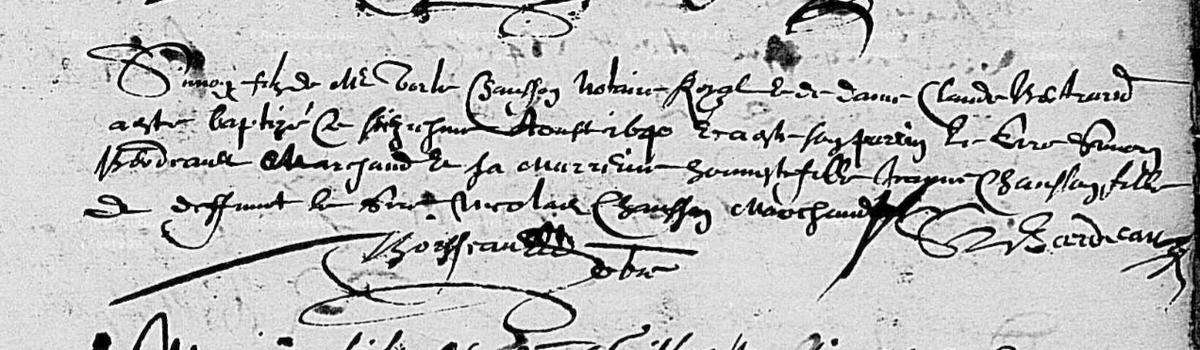 Simon filz de Me Chausson Notaire Royal et de dame Claude Bertrand
a esté baptizé ce seiziesme Aoust 1640 et a esté son parin le Sire Simon
Bordeaulx Marchand et sa Marreine honneste fille Jeanne Chausson fille
de deffunct le Sire Nicolas Chausson Marchand
S Bordeaux